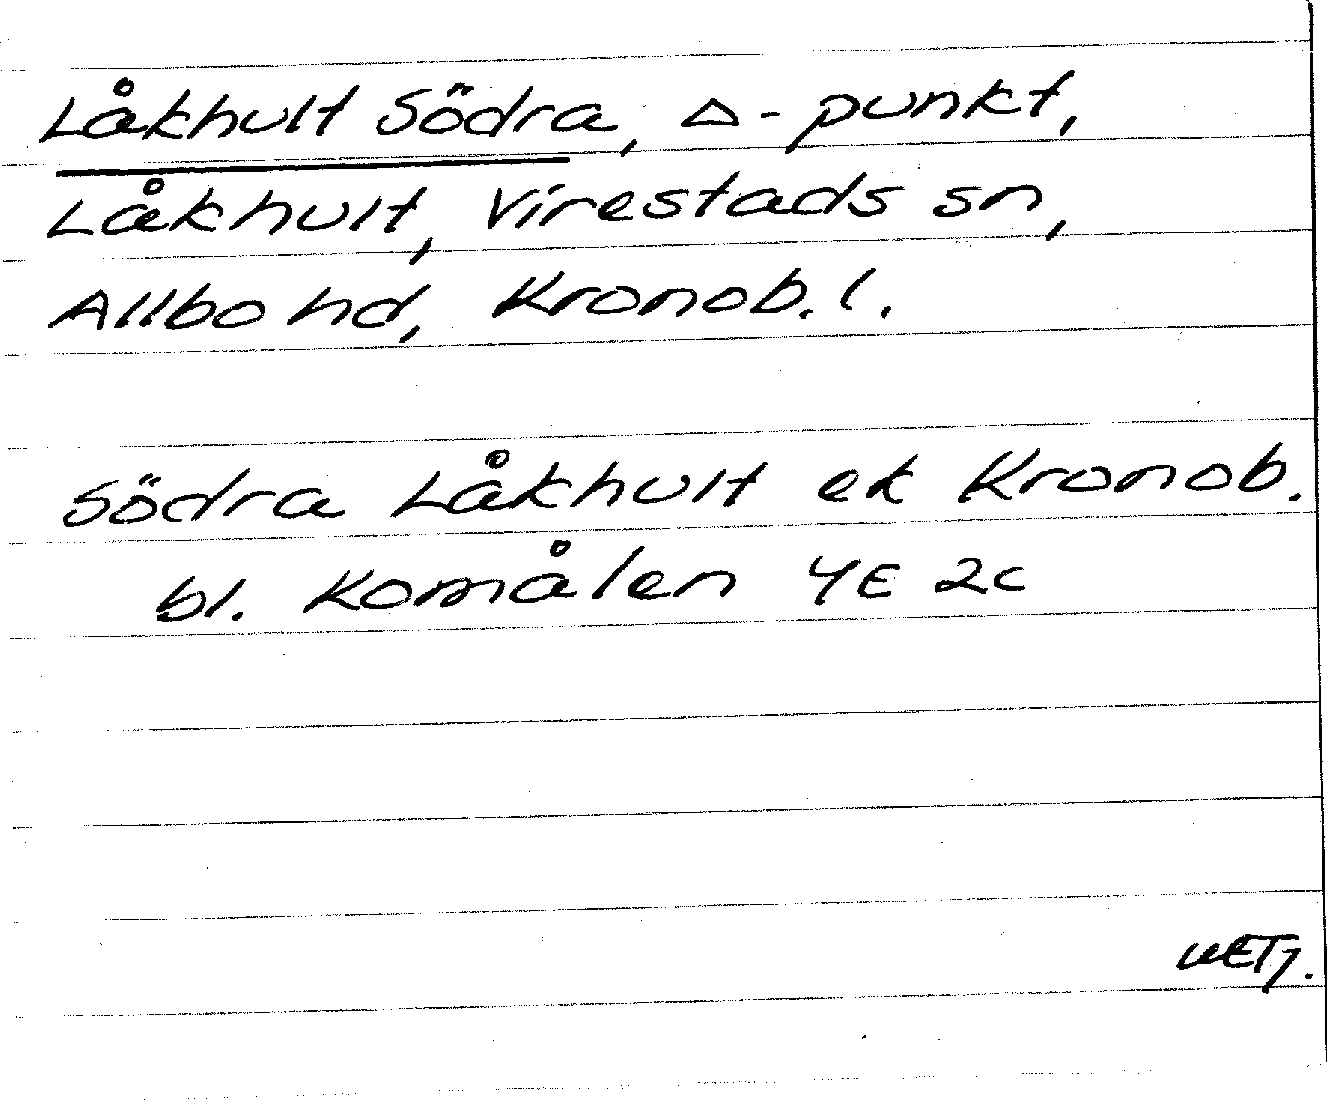 Låkhult Södra, △-punkt,
Låkhult, Virestads sn,
Allbo hd, Kronob. l.
Södra Låkhult ek Kronob.
bl. Komålen 4E 2c